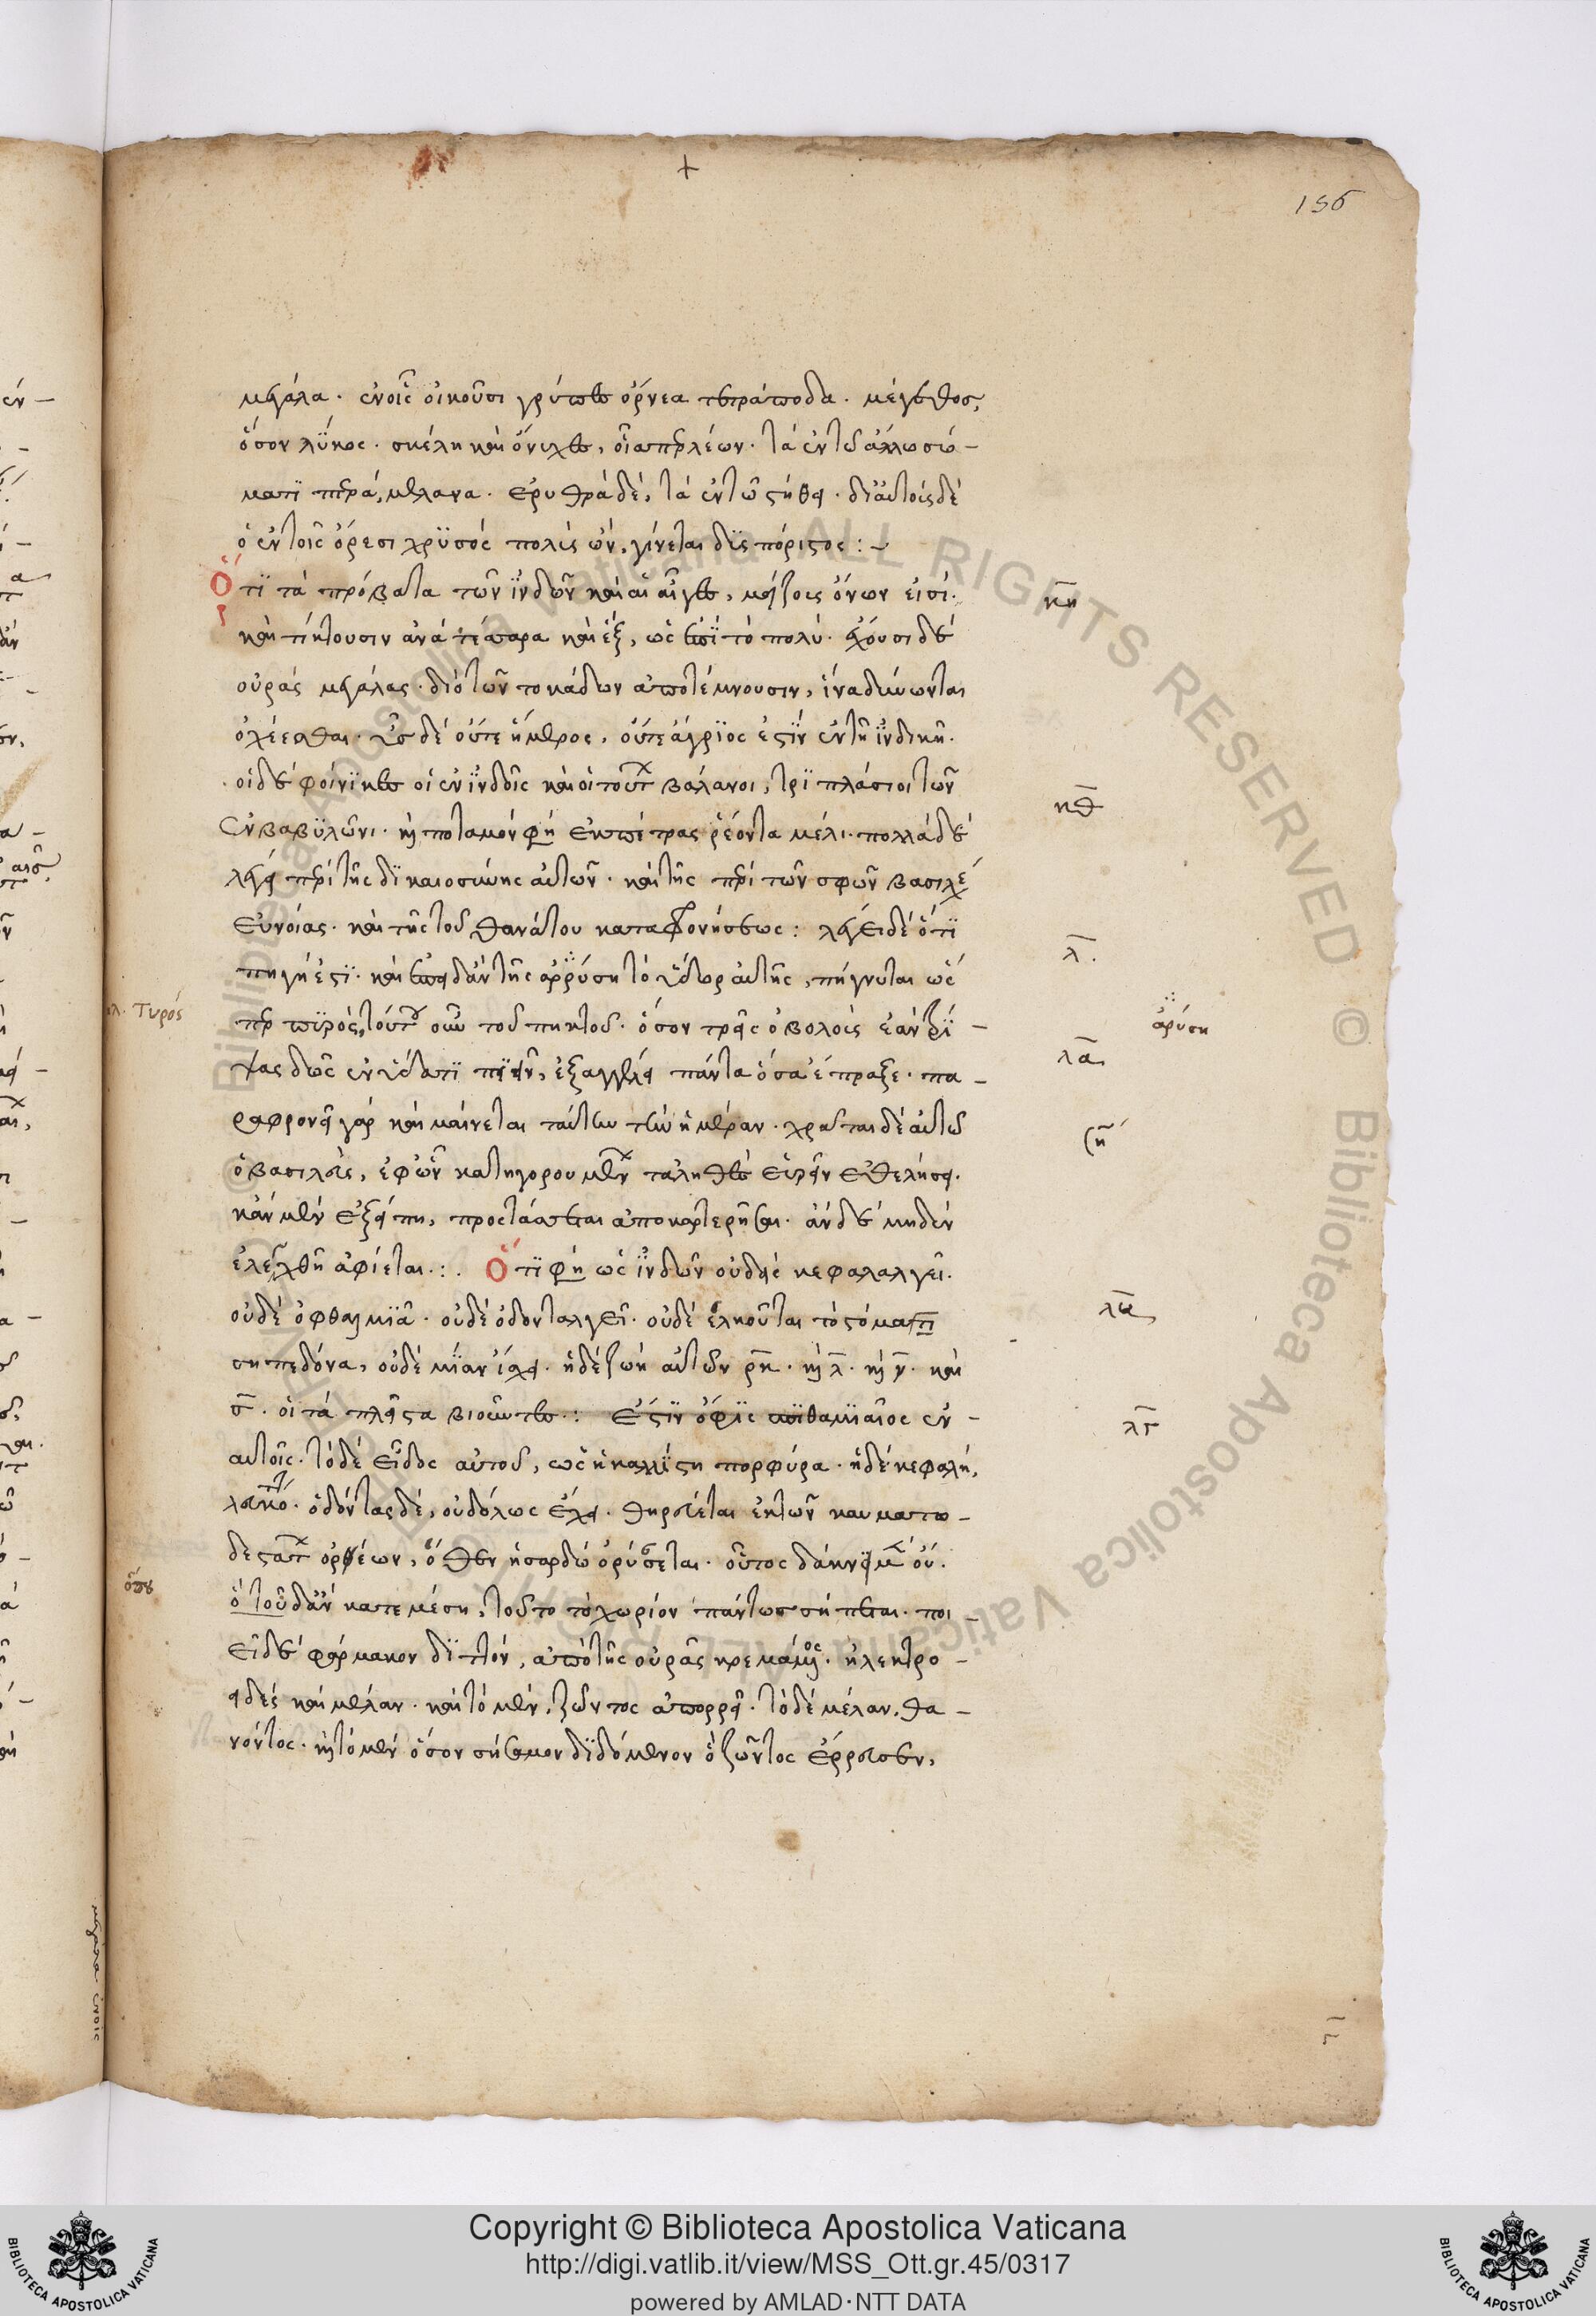 156
μεγάλα· ἐν οἷς οἰκοῦσι γρύπες ὄρνεα τετράποδα· μέγεθος,
ὅσον λύκος· σκέλη καὶ ὄνυχες, οἷάπερ λέων· τὰ ἐν τῷ ἄλλῳ σώ-
ματι πτερά, μέλανα· ἐρυθρὰ δὲ, τὰ ἐν τῷ στήθει· δι' αὐτοὺς δὲ
ὁ ἐν τοῖς ὄρεσι χρυσός πολὺς ὢν, γίνεται δυσπόριστος:
Ὅτι τὰ πρόβατα τῶν ἰνδῶν καὶ αἱ αἶγες, μείζους ὄνων εἰσί·
καὶ τίκτουσιν ἀνὰ τέσσαρα καὶ ἕξ, ὡς ἐπὶ τὸ πολύ· ἔχουσι δὲ
οὐρὰς μεγάλας· διὸ τῶν τοκάδων ἀποτέμνουσιν, ἵνα δύνωνται
ὀχέεσθαι· ὗς δὲ οὔτε ἥμερος, οὔτε ἄγριος ἐστὶν ἐν τῇ ἰνδικῇ·
οἱ δὲ φοίνικες οἱ ἐν ἰνδοῖς καὶ οἱ τούτων βάλανοι, τριπλάσιοι τῶν
ἐν βαβυλῶνι· καὶ ποταμόν φησὶ ἐκ πέτρας ῥέοντα μέλι· πολλὰ δὲ
λέγει περὶ τῆς δικαιοσύνης αὐτῶν· καὶ τῆς περὶ τῶν σφῶν βασιλέ
εὐνοίας· καὶ τῆς τοῦ θανάτου καταφρονήσεως: λέγει δὲ ὅτι
πηγή ἐστι· καὶ ἐπειδάν τῆς ἀρρύσῃ τὸ ὕδωρ αὐτῆς, πήγνυται ὡς
περ τυρός, τούτου οὖν τοῦ πηκτοῦ· ὅσον τρεῖς ὀβολοὺς ἐὰν τρί-
ψας δῷς ἐν ὕδατι πιεῖν, ἐξαγγέλει πάντα ὅσα ἔπραξε· πα-
ραφρονεῖ γὰρ καὶ μαίνεται ταύτην τὴν ἡμέραν· χρᾶται δὲ αὐτῷ
ὁ βασιλεὺς, ἐφ' ὧν κατηγορουμένων τἀληθὲς εὑρεῖν ἐθελήσει·
κἂν μὲν ἐξείπῃ, προστάσσεται ἀποκαρτερῆσαι· ἂν δὲ μηδὲν
ἐλεγχθῇ ἀφίεται:. Ὅτι φησὶ ὡς ἰνδῶν οὐδεὶς κεφαλαλγεῖ·
οὐδὲ ὀφθαλμιᾷ· οὐδὲ ὀδονταλγεῖ· οὐδὲ ἑλκοῦται τὸ στόμα
σηπεδόνα, οὐδὲ μίαν ἴσχει· ἡ δὲ ζωὴ αὐτῶν ρκ· καὶ λ· καὶ ν· καὶ
σ· οἱ τὰ πλεῖστα βιοῦντες: Ἔστιν ὄφις σπιθαμιαῖος ἐν
αὐτοῖς· τὸ δὲ εἶδος αὐτοῦ, ὡς ἡ καλλίστη πορφύρα· ἡ δὲ κεφαλή,
λευκό· ὀδόντας δὲ, οὐδόλως ἔχει· θηρεύεται ἐκ τῶν καυματω-
δεστάτων ὀρέων, ὅθεν ἡ σαρδὼ ὀρύσσεται· οὗτος δάκνει μὲν οὐ·
ὁ τοῦ δἂν κατεμέσῃ, τοῦτο τὸ χωρίον πάντως σήπεται· ποι
εῖ δὲ φάρμακον διττόν, ἀπὸ τῆς οὐρᾶς κρεμάμενος· ἠλεκτρο-
ειδὲς καὶ μέλαν· καὶ τὸ μὲν, ζῶντος ἀπορρεῖ· τὸ δὲ μέλαν, θα-
νόντος· καὶ τὸ μὲν ὅσον σήσαμον διδόμενον ὃ ζῶντος ἔρρευσεν,
κη
κθ
λ
ἀρύσῃ
λα
ση
λβ
λγ
γλ. Τυρός
ὅπου
Copyright © Biblioteca Apostolica Vaticana
http://digi.vatlib.it/view/MSS_Ott.gr.45/0317
powered by AMLAD·NTT DATA
BIBLIOTECA APOSTOLICA VATICANA
BIBLIOTECA APOSTOLICA VATICANA